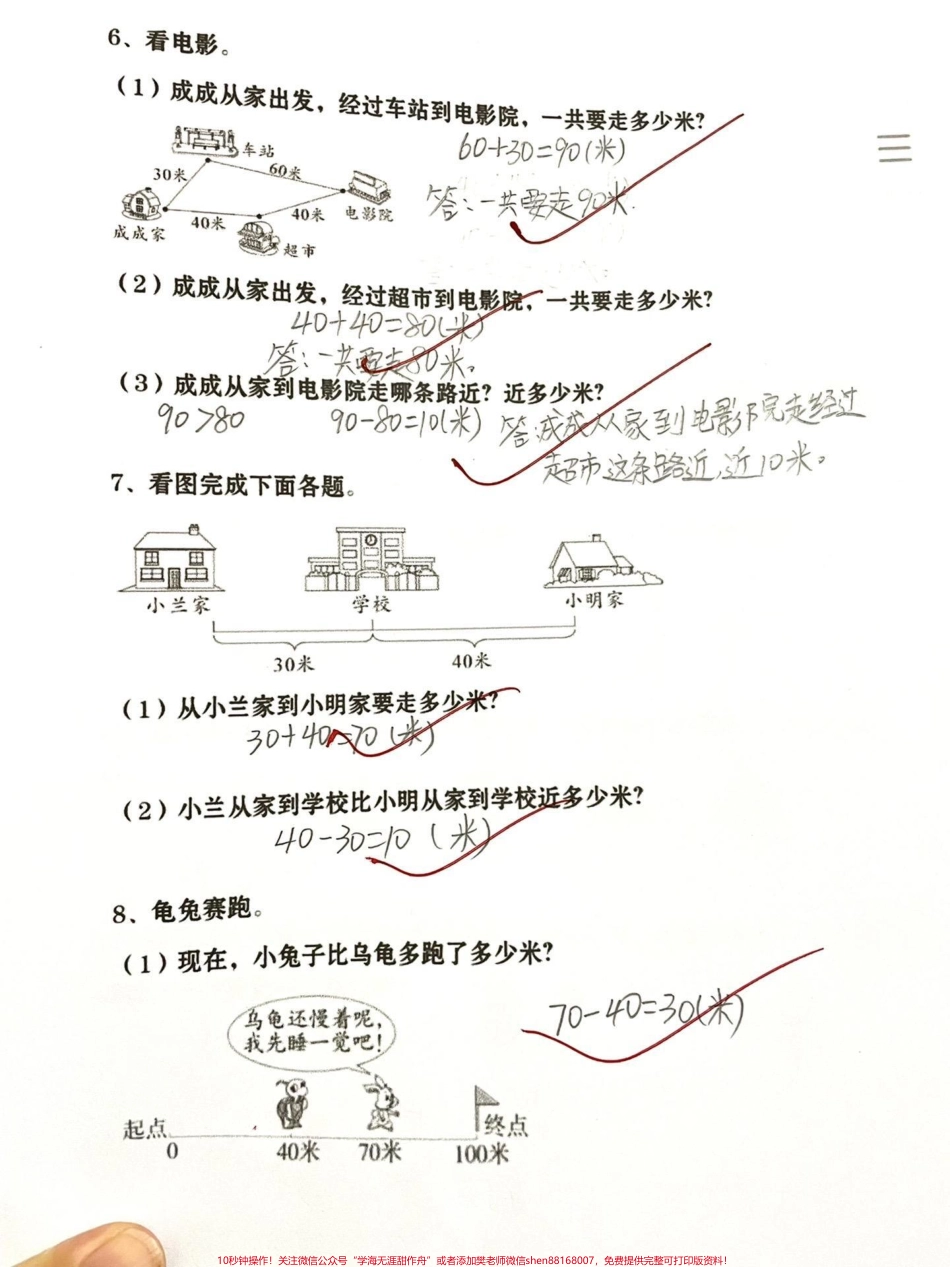 6、看电影。
（1）成成从家出发，经过车站到电影院，一共要走多少米？
60+30=90(米)
答：一共要走90米.
车站
30米
60米
成成家
40米
40米
电影院
超市
（2）成成从家出发，经过超市到电影院，一共要走多少米？
40+40=80(米)
答：一共要走80米。
（3）成成从家到电影院走哪条路近？近多少米？
90>80 90-80=10(米) 答：成成从家到电影院走经过
超市这条路近，近10米。
7、看图完成下面各题。
小兰家 学校 小明家
30米 40米
（1）从小兰家到小明家要走多少米？
30+40=70（米）
（2）小兰从家到学校比小明从家到学校近多少米？
40-30=10（米）
8、龟兔赛跑。
（1）现在，小兔子比乌龟多跑了多少米？
70-40=30(米)
乌龟还慢着呢，
我先睡一觉吧！
起点 终点
0 40米 70米 100米
10秒钟操作！关注微信公众号“学海无涯甜作舟”或者添加樊老师微信shen88168007，免费提供完整可打印版资料！